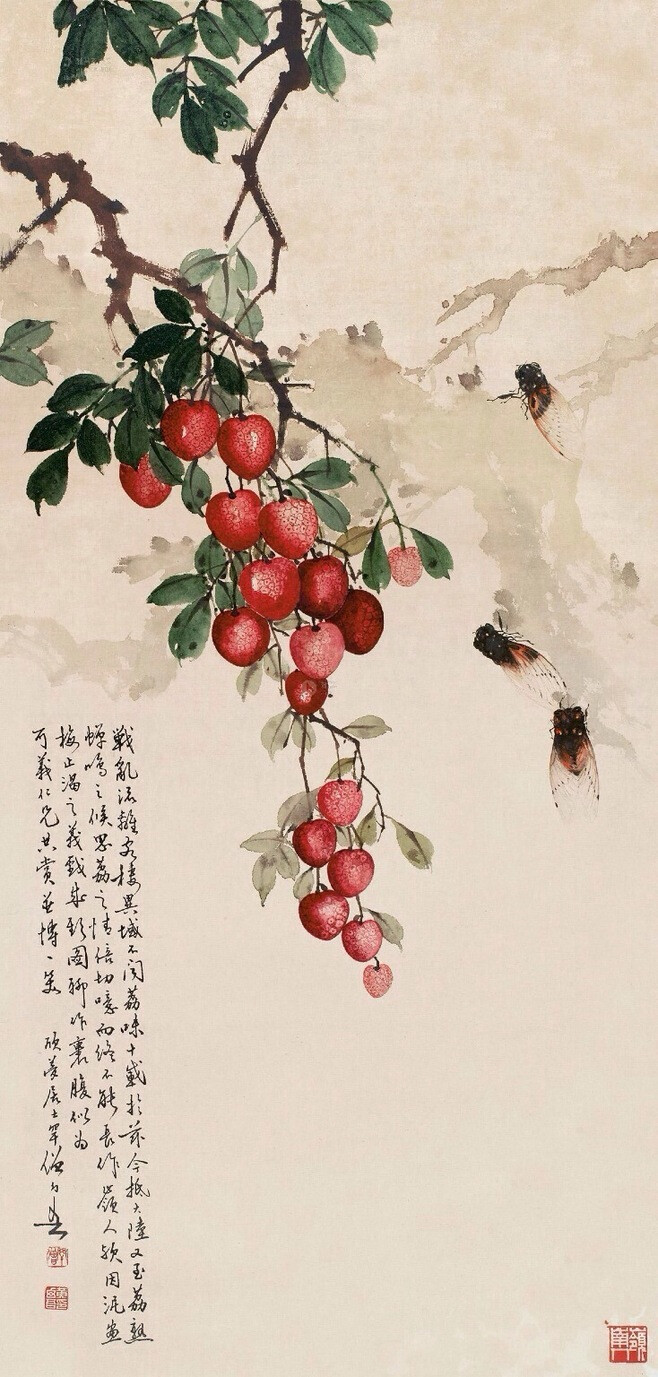 戰亂流離客棲異域不聞荔味十載於茲今抵大陸又至荔熟
蟬鳴之候思荔之情倍切噫而終不能長作嶺人歟因畫
梅止渴之義戲成斯圖聊作裹腹似為
可義仁兄共賞並博一笑 居士
嶺南